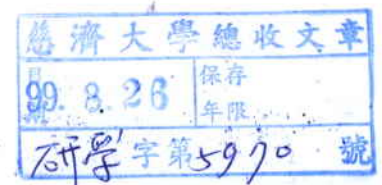 慈濟大學總收文章
日期 99. 8. 26 保存年限
研學字第5970號